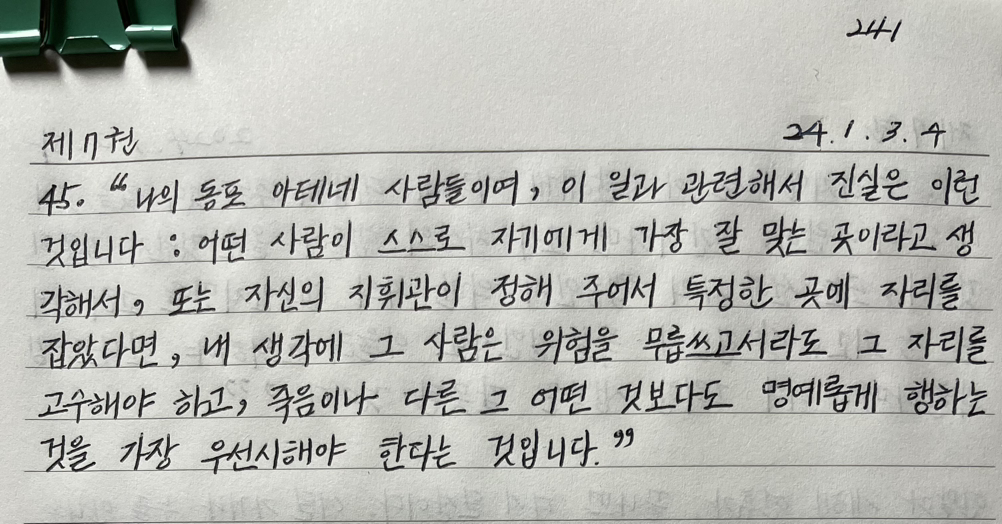 241
제7권 24.1.3.수
45. “나의 동포 아테네 사람들이여, 이 일과 관련해서 진실은 이런
것입니다 : 어떤 사람이 스스로 자기에게 가장 잘 맞는 곳이라고 생
각해서, 또는 자신의 지휘관이 정해 주어서 특정한 곳에 자리를
잡았다면, 내 생각에 그 사람은 위험을 무릅쓰고서라도 그 자리를
고수해야 하고, 죽음이나 다른 그 어떤 것보다도 명예롭게 행하는
것을 가장 우선시해야 한다는 것입니다.”